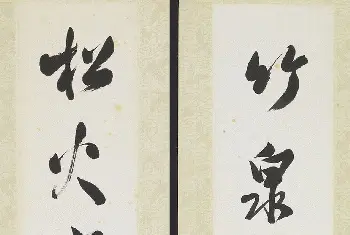 竹泉
松火